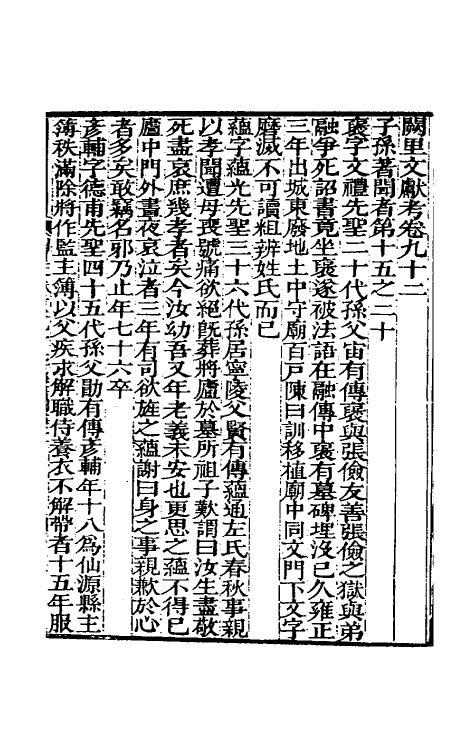 闕里文獻考卷九十二
子孫著聞者第十五之二十
褒字文禮先聖二十代孫父宙有傳褒與張儉友善張儉之獄與弟
融爭死詔書竟坐褒遂被法語在融傳中褒有墓碑埋沒已久雍正
三年出城東廢地土中守廟百戸陳曰訓移植廟中同文門下文字
磨滅不可讀粗辨姓氏而已
蘊字蘊光先聖三十六代孫居寧陵父賢有傳蘊通左氏春秋事親
以孝聞遭母喪號痛欲絕旣葬將廬於墓所祖子歎謂曰汝生盡敬
死盡哀庶幾孝者矣今汝幼吾又年老義未安也更思之蘊不得已
廬中門外晝夜哀泣者三年有司欲旌之蘊謝曰身之事親歉於心
者多矣敢竊名邪乃止年七十六卒
彥輔字德甫先聖四十五代孫父勖有傳彥輔年十八爲仙源縣主
簿秩滿除將作監主簿以父疾求解職侍養衣不解帶者十五年服